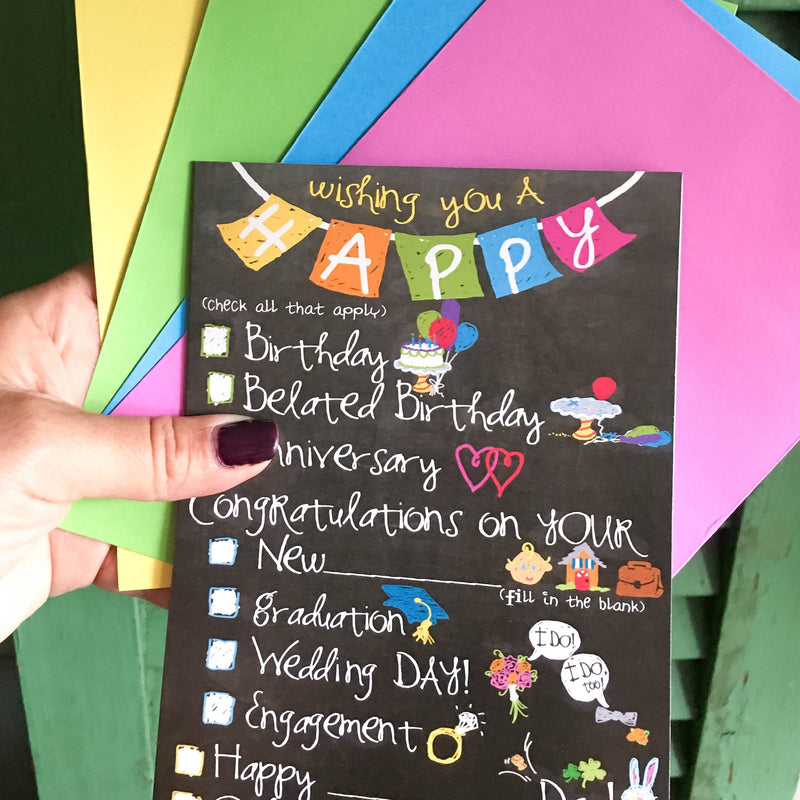 wishing you A
HAPPY
(check all that apply)
Birthday
Belated Birthday
Congratulations on YOUR
New
(fill in the blank)
graduation
I DO!
Wedding DAY!
I DO, too!
Engagement
Happy Day!